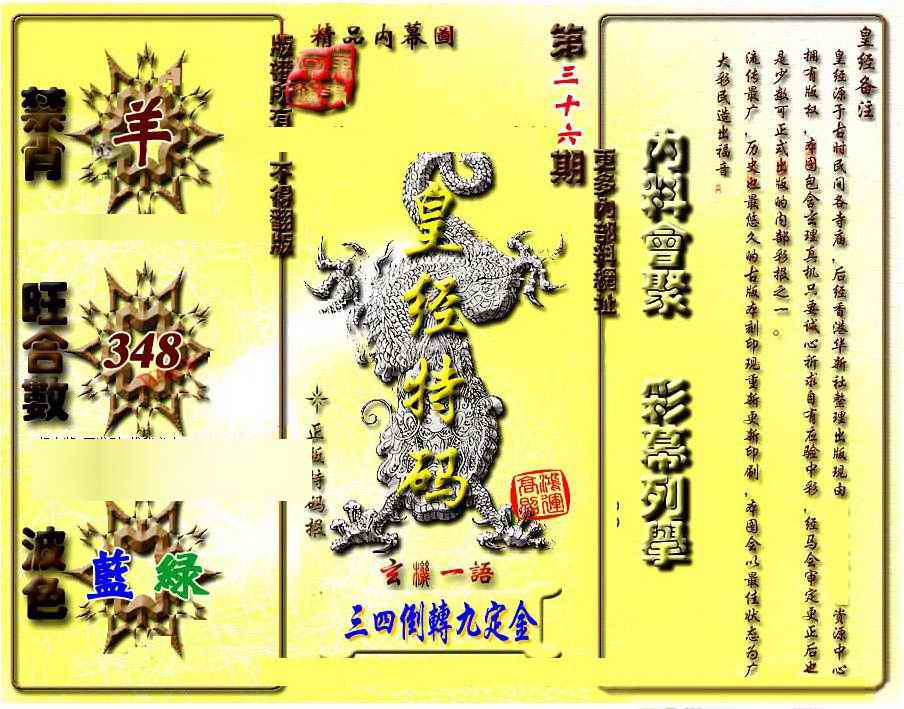 精品内幕圖
第三十六期
版權所有
不得翻版
更多內部料網址
禁肖
羊
旺合數
348
波色
藍 綠
皇经特码
正版特码报
鴻運高照
玄機一語
三四倒轉九定金
内料會聚
彩幕列舉
皇经备注
皇经源于古时民间各寺庙,后经香港华新社整理出版现由 资源中心
拥有版权,本图包含玄理真机只要诚心祈求自有应验中彩,经马会审定更正后也
是少数可正式出版的内部彩报之一。
流传最广,历史也最悠久的古版本刻印现重新更新印刷,本图会以最佳状态为广
大彩民造出福音